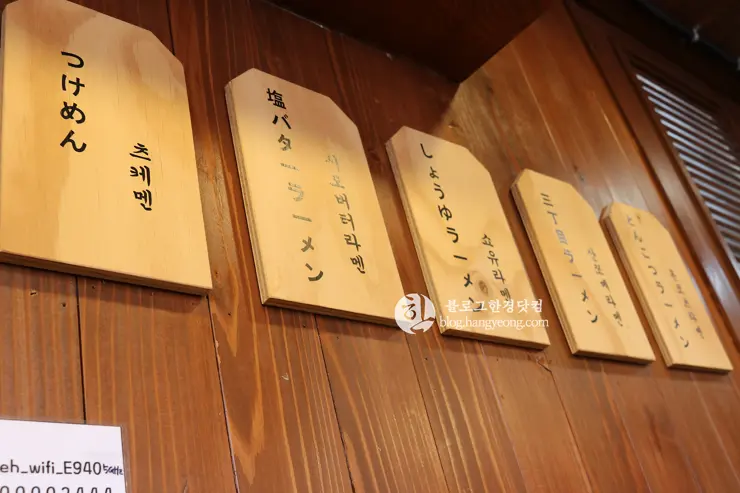 つけめん
츠케멘
塩バターラーメン
시오버터라멘
しょうゆラーメン
쇼유라멘
ラーメン
とんこつラーメン
블로그한경닷컴
blog.hangyeong.com
eh_wifi_E940